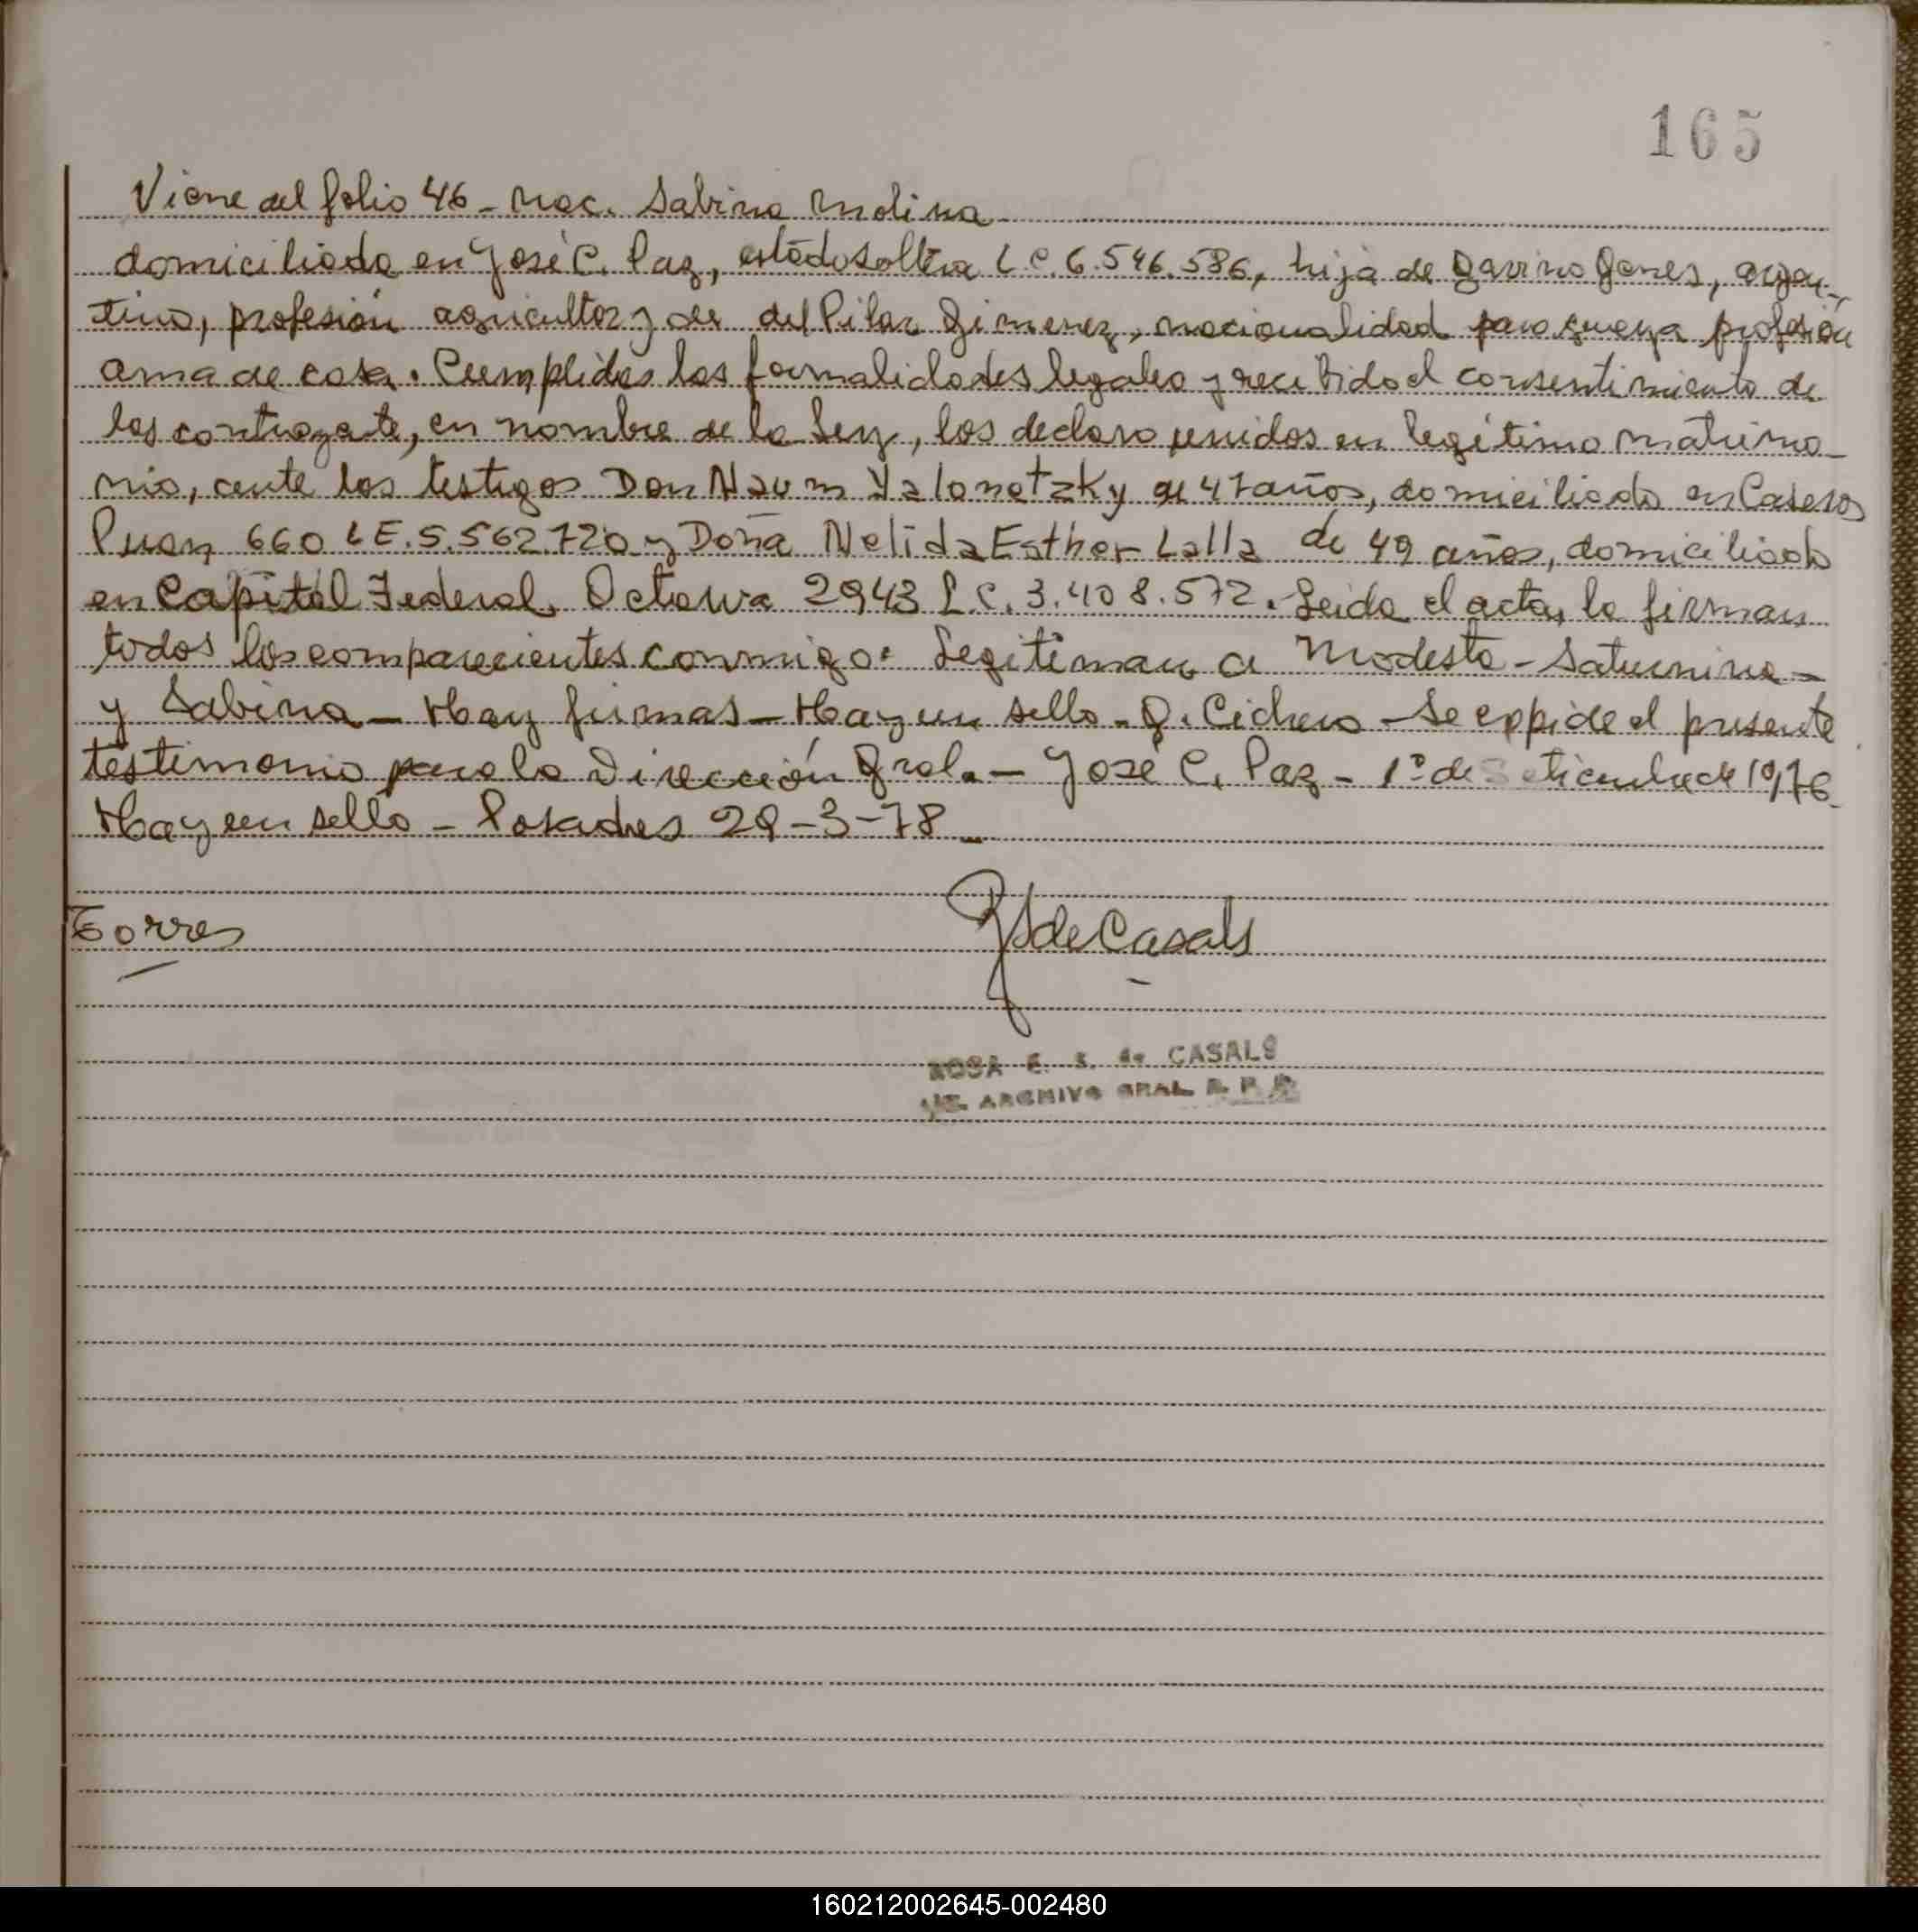 165
Viene del folio 46 - Nac. Sabina Molina
domiciliada en José C. Paz, estado soltera L.C. 6.546.586, hija de Gavino Gones, argen-
tino, profesión agricultor y de del Pilar Gimenez, nacionalidad paraguaya profesión
ama de casa. Cumplidas las formalidades legales y recibido el consentimiento de
los contrayente, en nombre de la Ley, los declaro unidos en legítimo matrimo-
nio, ante los testigos Don Naum Yalonetzky de 47 años, domiciliado en Caseros
Puan 660 L E. 5.562.720 y Doña Nelida Esther Lalla de 49 años, domiciliada
en Capital Federal, Octavia 2943 L C. 3.408.572. Leida el acta, la firman
todos los comparecientes conmigo. Legitiman a Modesta - Saturnina -
y Sabina - Hay firmas - Hay un sello - G. Cichero - Se expide el presente
testimonio para la Dirección Gral. - José C. Paz - 1º de Setiembre de 1976
Hay un sello - Posadas 29-3-78
Torres
RS de Casals
ROSA E. S. de CASALS
ARCHIVO GRAL. R. P. P.
160212002645-002480